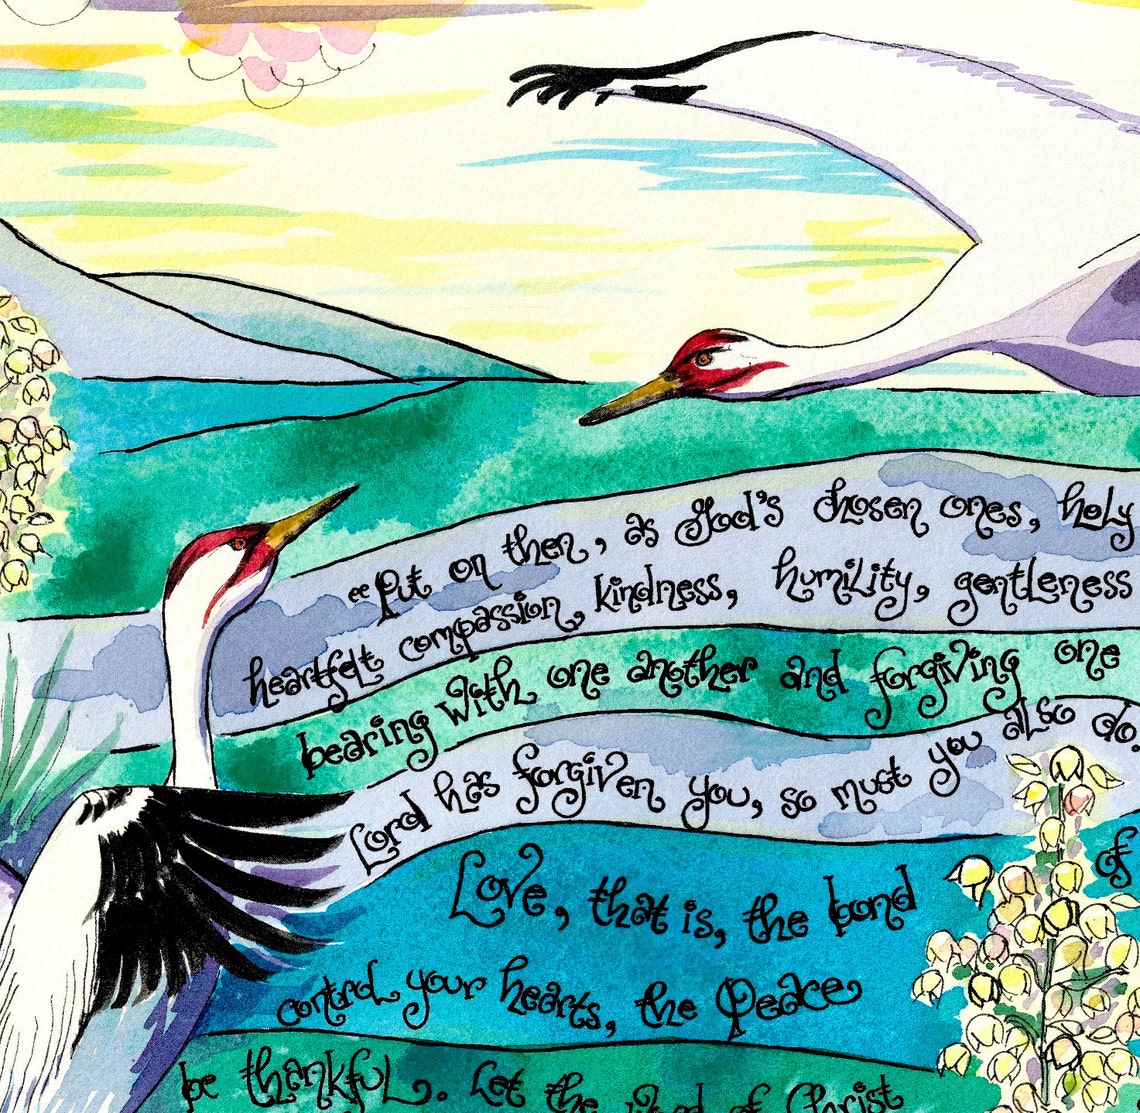 “Put on then, as God's chosen ones, holy
heartfelt compassion, kindness, humility, gentleness
bearing with one another and forgiving one
Lord has forgiven you, so must you also do.
Love, that is, the bond of
control your hearts, the Peace
be thankful. Let the word of Christ